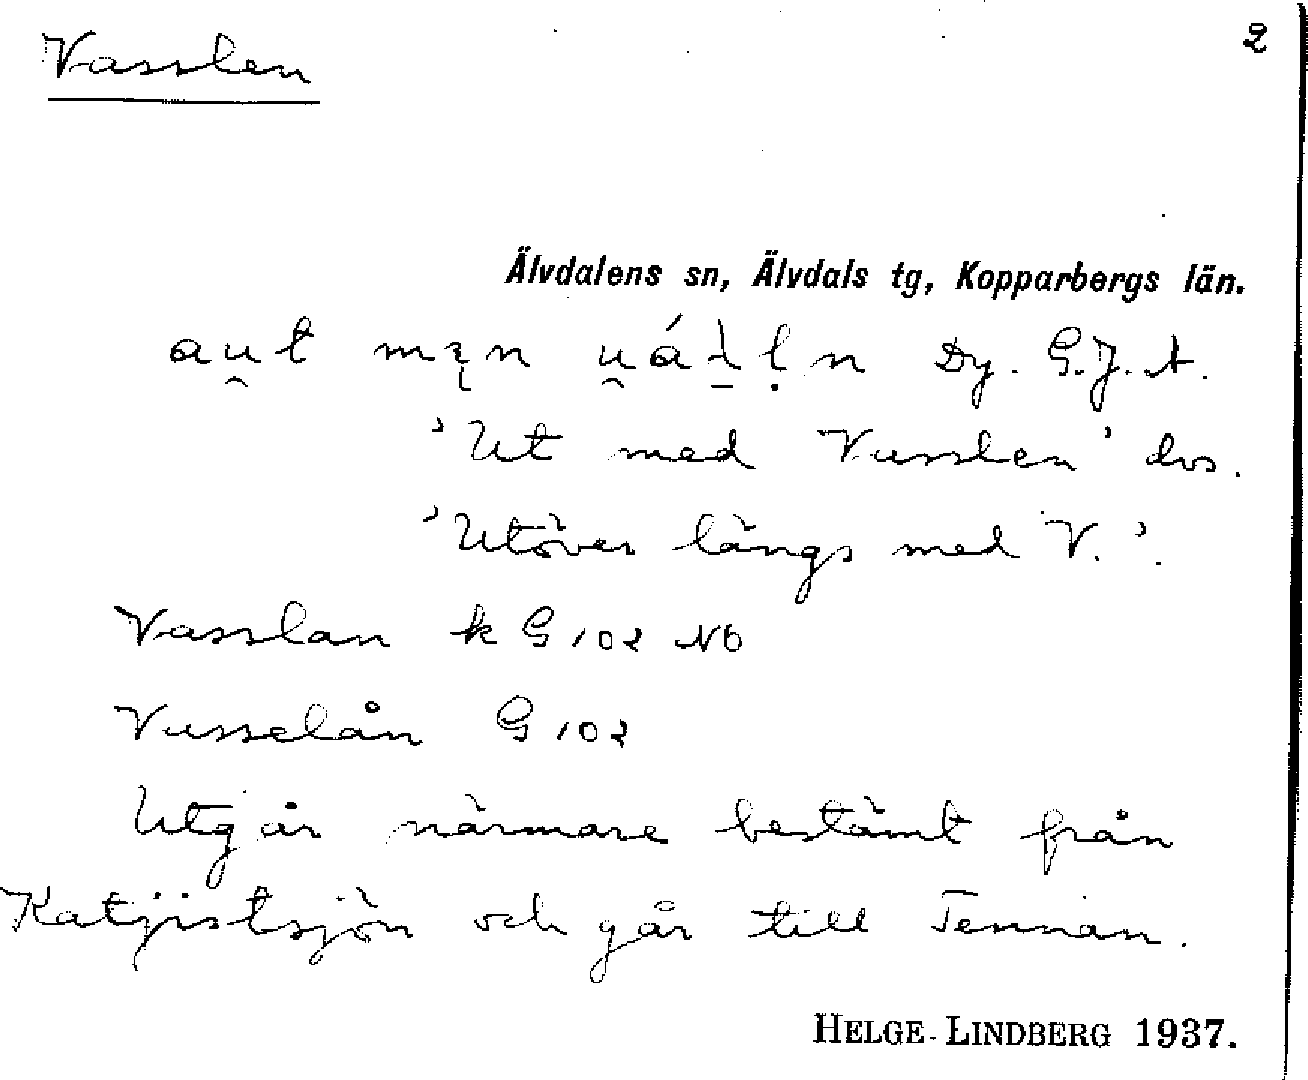 Vasslen 2
Älvdalens sn, Älvdals tg, Kopparbergs län.
au̯t Dy. G.J.A.
'Ut med Vusslen' dvs.
'Utöver längs med V.'.
Vasslan k G 102 NO
Vusselån G 102
Utgår närmare bestämt från
Katjistsjön och går till Tennån.
HELGE LINDBERG 1937.